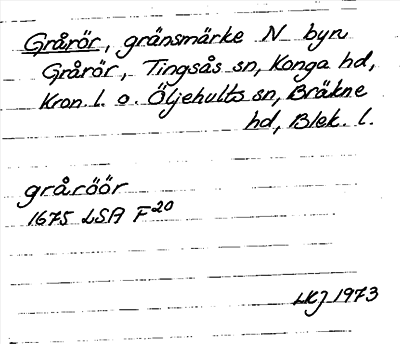 Grårör, gränsmärke N byn
Grårör, Tingsås sn, Konga hd,
Kron. l. o. Öljehults sn, Bräkne
hd, Blek. l.
gråröör
1675 LSA F20
LKJ 1973